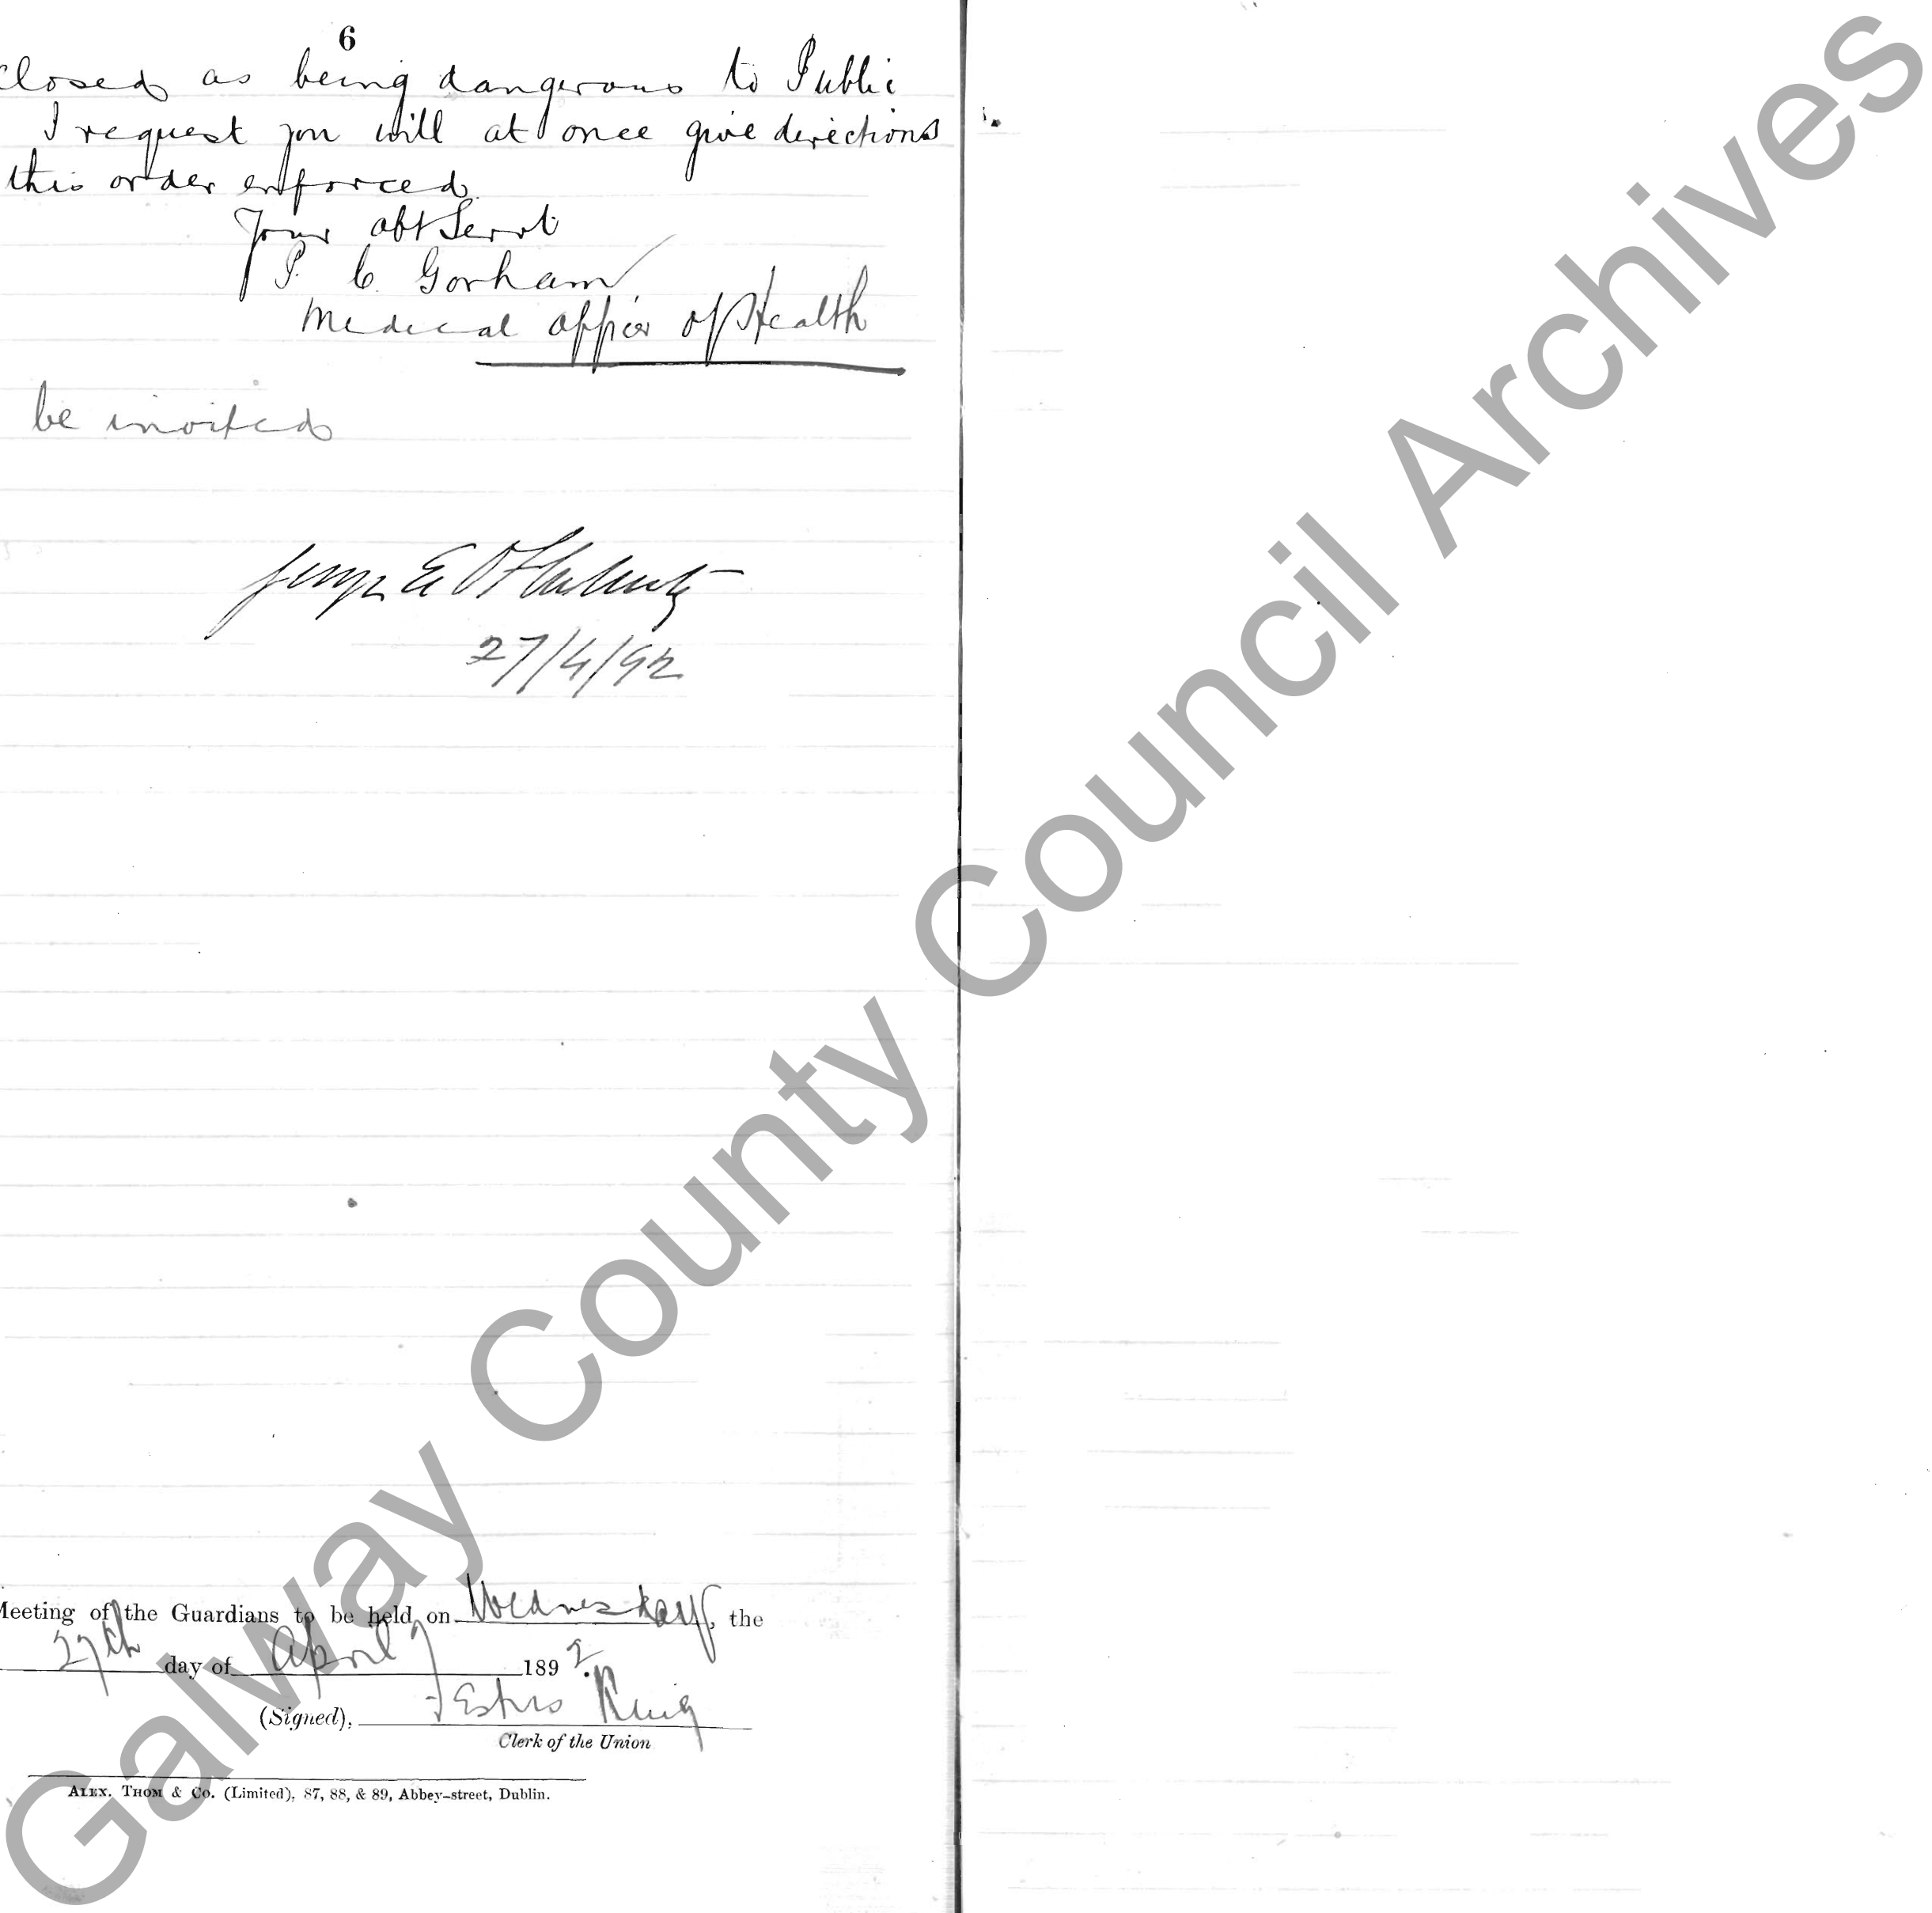 6
closed as being dangerous to Public
I request you will at once give directions
this order enforced.
Your obt Servt
P. C. Gorham
Medical Officer of Health
be invited
George E O'Flaherty
27/4/92
Meeting of the Guardians to be held on Wednesday, the
27th day of April 1892.
(Signed), King
Clerk of the Union
ALEX. THOM & CO. (Limited), 87, 88, & 89, Abbey-street, Dublin.
Galway County Council Archives